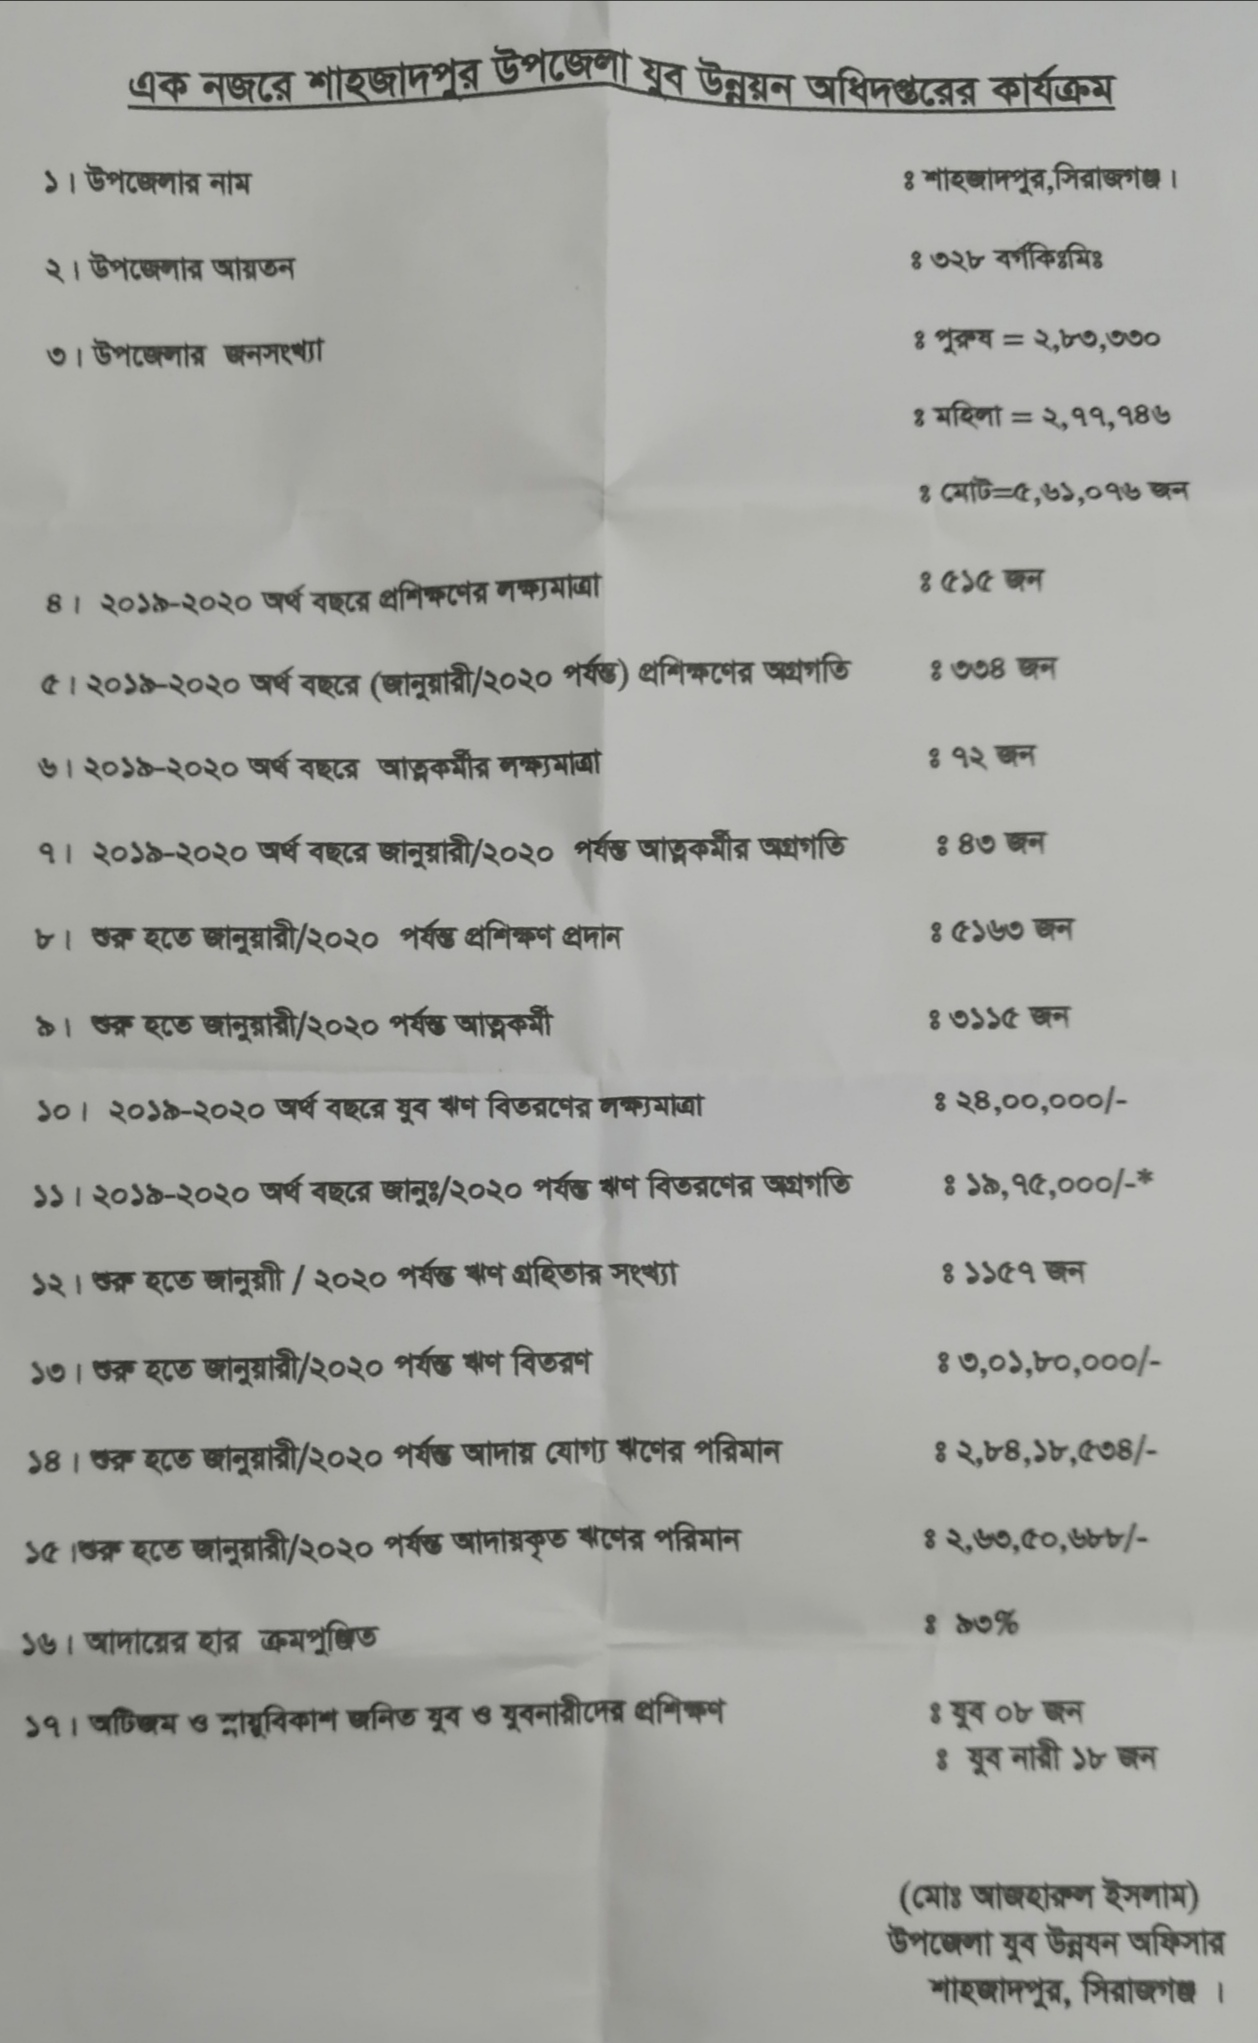 এক নজরে শাহজাদপুর উপজেলা যুব উন্নয়ন অধিদপ্তরের কার্যক্রম
১। উপজেলার নাম ঃ শাহজাদপুর,সিরাজগঞ্জ।
২। উপজেলার আয়তন ঃ ৩২৮ বর্গকিঃমিঃ
৩। উপজেলার জনসংখ্যা ঃ পুরুষ = ২,৮৩,৩৩০
ঃ মহিলা = ২,৭৭,৭৪৬
ঃ মোট=৫,৬১,০৭৬ জন
৪। ২০১৯-২০২০ অর্থ বছরে প্রশিক্ষণের লক্ষ্যমাত্রা ঃ ৫১৫ জন
৫। ২০১৯-২০২০ অর্থ বছরে (জানুয়ারী/২০২০ পর্যন্ত) প্রশিক্ষণের অগ্রগতি ঃ ৩৩৪ জন
৬। ২০১৯-২০২০ অর্থ বছরে আত্নকর্মীর লক্ষ্যমাত্রা ঃ ৭২ জন
৭। ২০১৯-২০২০ অর্থ বছরে জানুয়ারী/২০২০ পর্যন্ত আত্নকর্মীর অগ্রগতি ঃ ৪৩ জন
৮। শুরু হতে জানুয়ারী/২০২০ পর্যন্ত প্রশিক্ষণ প্রদান ঃ ৫১৬৩ জন
৯। শুরু হতে জানুয়ারী/২০২০ পর্যন্ত আত্নকর্মী ঃ ৩১১৫ জন
১০। ২০১৯-২০২০ অর্থ বছরে যুব ঋণ বিতরণের লক্ষ্যমাত্রা ঃ ২৪,০০,০০০/-
১১। ২০১৯-২০২০ অর্থ বছরে জানুঃ/২০২০ পর্যন্ত ঋণ বিতরণের অগ্রগতি ঃ ১৯,৭৫,০০০/-*
১২। শুরু হতে জানুয়াী / ২০২০ পর্যন্ত ঋণ গ্রহিতার সংখ্যা ঃ ১১৫৭ জন
১৩। শুরু হতে জানুয়ারী/২০২০ পর্যন্ত ঋণ বিতরণ ঃ ৩,০১,৮০,০০০/-
১৪। শুরু হতে জানুয়ারী/২০২০ পর্যন্ত আদায় যোগ্য ঋণের পরিমান ঃ ২,৮৪,১৮,৫৩৪/-
১৫।শুরু হতে জানুয়ারী/২০২০ পর্যন্ত আদায়কৃত ঋণের পরিমান ঃ ২,৬৩,৫০,৬৮৮/-
১৬। আদায়ের হার ক্রমপুঞ্জিত ঃ ৯৩%
১৭। অটিজম ও স্নায়ুবিকাশ জনিত যুব ও যুবনারীদের প্রশিক্ষণ ঃ যুব ০৮ জন
ঃ যুব নারী ১৮ জন
(মোঃ আজহারুল ইসলাম)
উপজেলা যুব উন্নয়ন অফিসার
শাহজাদপুর, সিরাজগঞ্জ ।